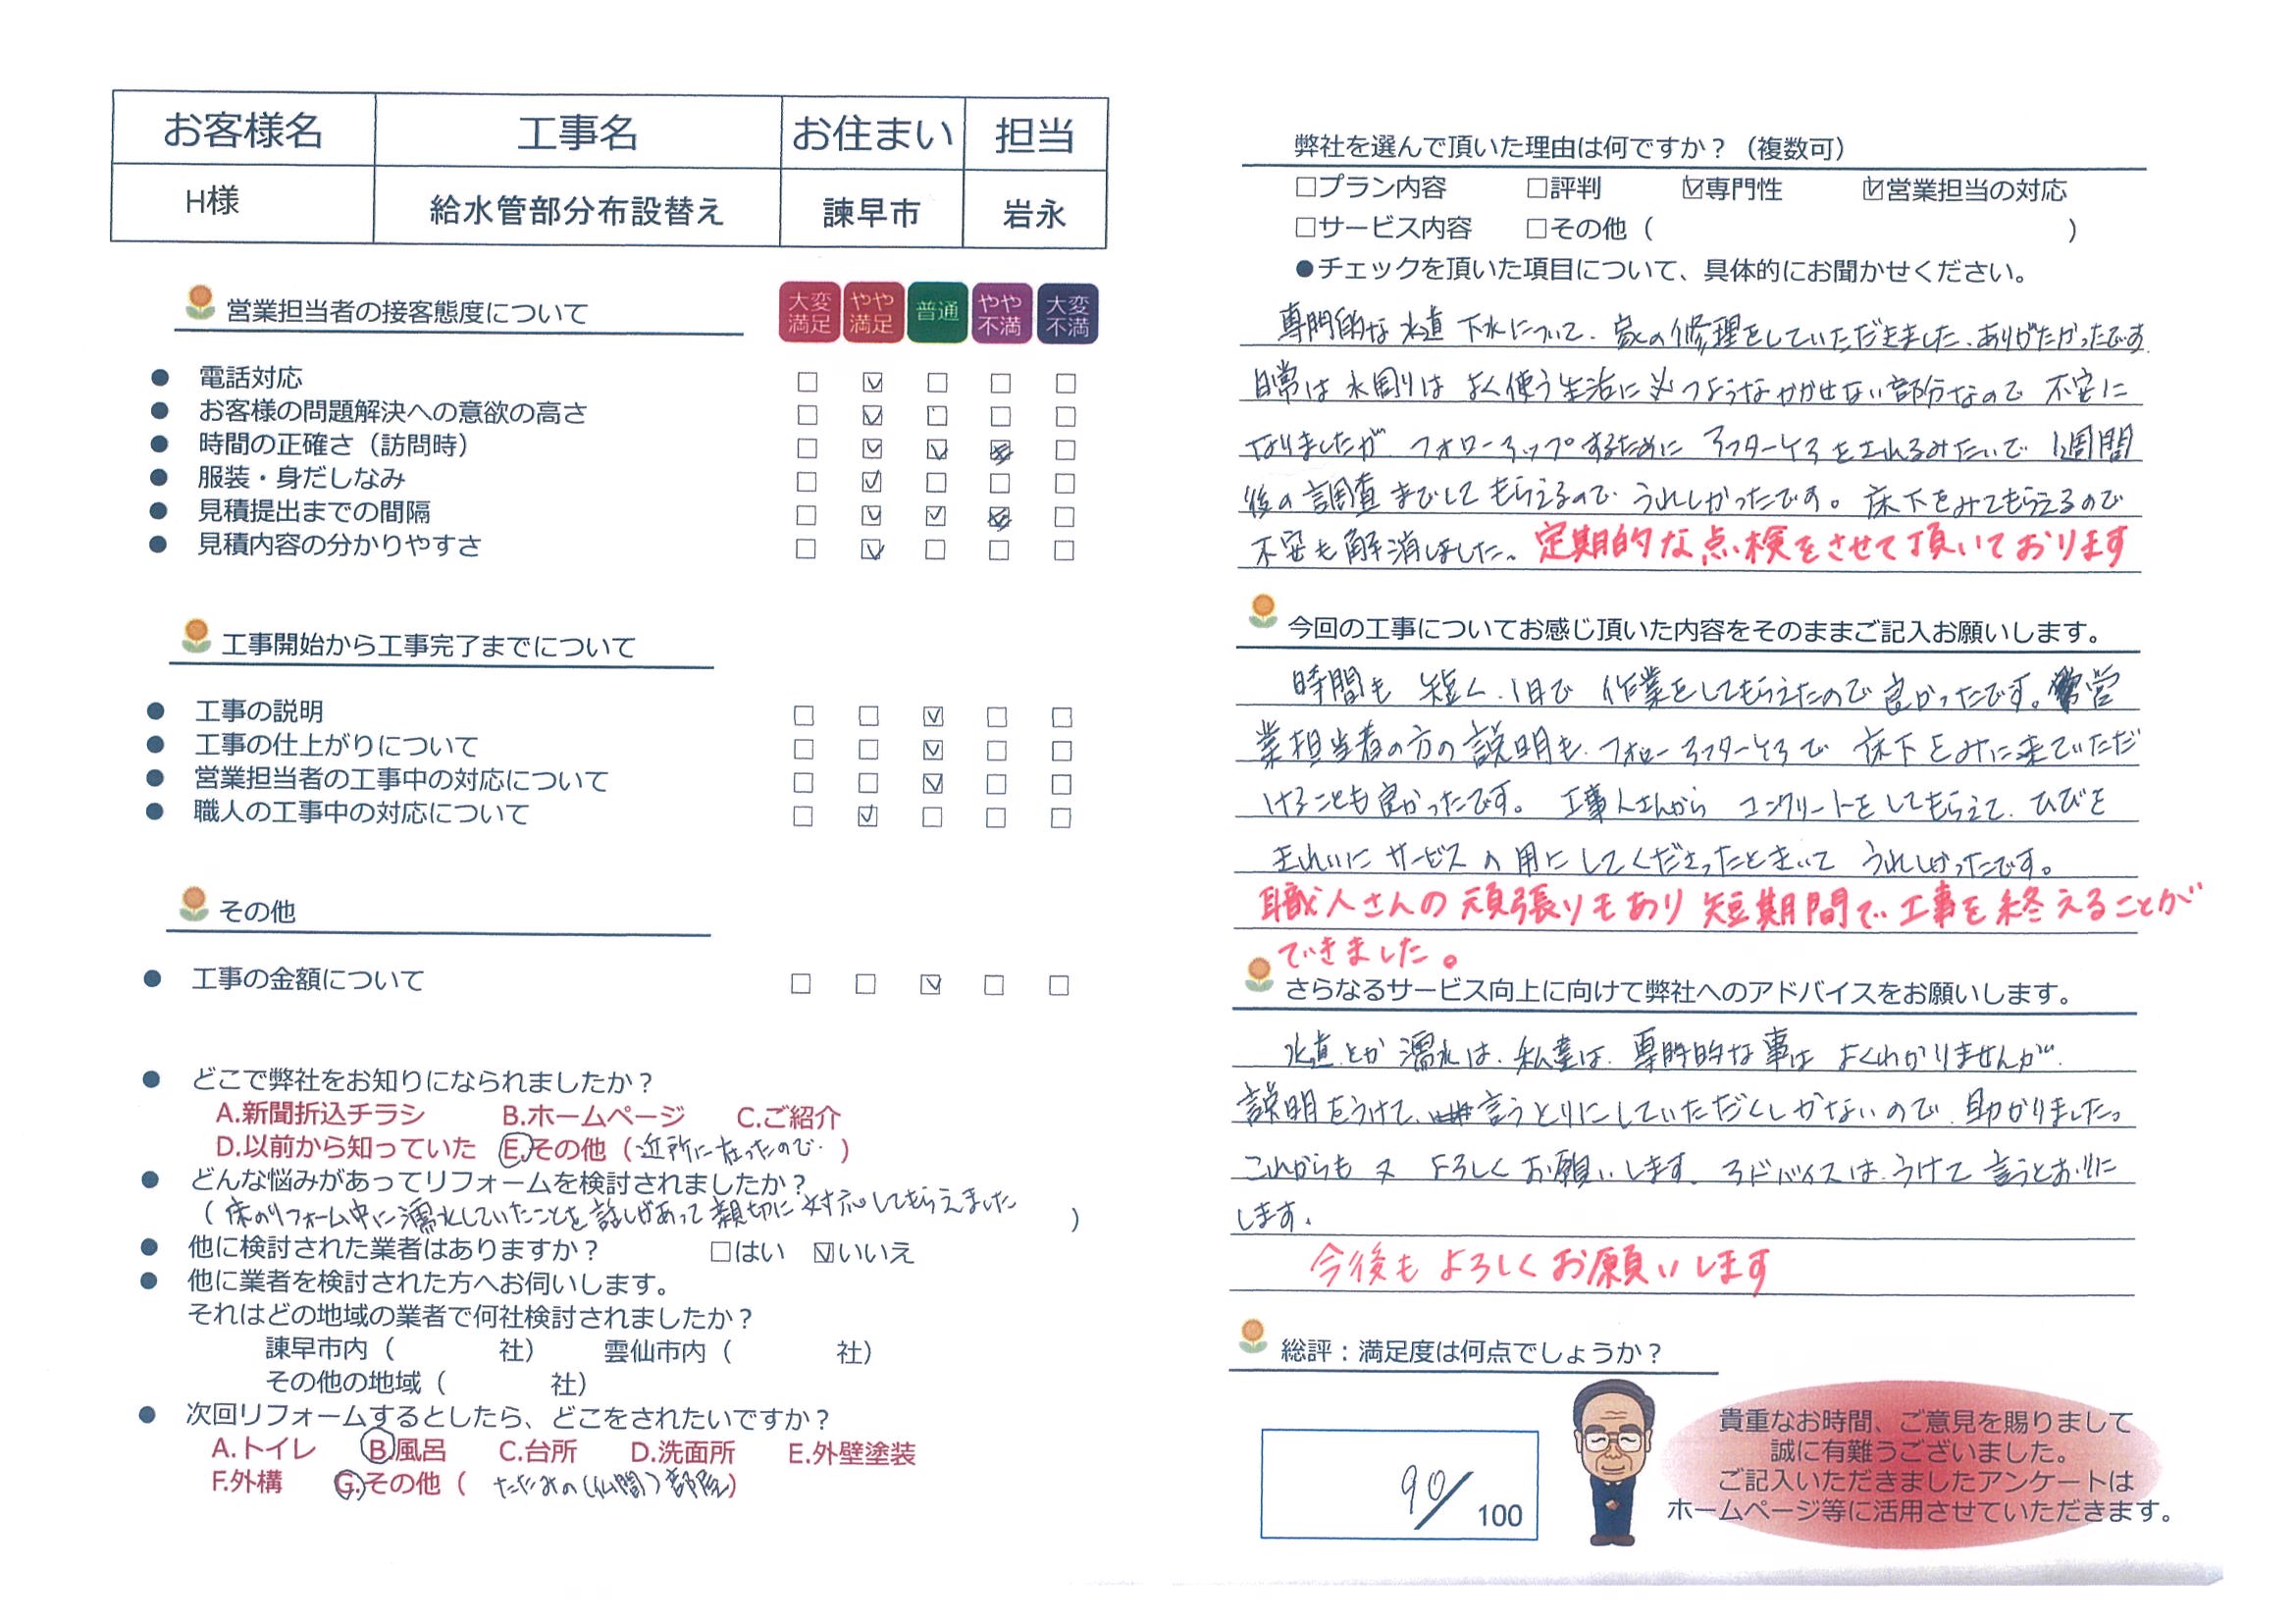 お客様名 工事名 お住まい 担当
H様 給水管部分布設替え 諫早市 岩永
営業担当者の接客態度について
大変満足 やや満足 普通 やや不満 大変不満
● 電話対応 □ ☑ □ □ □
● お客様の問題解決への意欲の高さ □ ☑ □ □ □
● 時間の正確さ（訪問時） □ ☑ ☑ □
● 服装・身だしなみ □ ☑ □ □ □
● 見積提出までの間隔 □ ☑ ☑ □
● 見積内容の分かりやすさ □ ☑ □ □ □
工事開始から工事完了までについて
● 工事の説明 □ □ ☑ □ □
● 工事の仕上がりについて □ □ ☑ □ □
● 営業担当者の工事中の対応について □ □ ☑ □ □
● 職人の工事中の対応について □ ☑ □ □ □
その他
● 工事の金額について □ □ ☑ □ □
● どこで弊社をお知りになられましたか？
A.新聞折込チラシ B.ホームページ C.ご紹介
D.以前から知っていた E.その他（近所に在ったので）
● どんな悩みがあってリフォームを検討されましたか？
（床のリフォーム中に漏水していたことを話しがあって親切に対応してもらえました）
● 他に検討された業者はありますか？ □はい ☑いいえ
● 他に業者を検討された方へお伺いします。
それはどの地域の業者で何社検討されましたか？
諫早市内（ 社） 雲仙市内（ 社）
その他の地域（ 社）
● 次回リフォームするとしたら、どこをされたいですか？
A.トイレ B.風呂 C.台所 D.洗面所 E.外壁塗装
F.外構 G.その他（ たたみの（仏間）部屋）
弊社を選んで頂いた理由は何ですか？（複数可）
□プラン内容 □評判 ☑専門性 ☑営業担当の対応
□サービス内容 □その他（ ）
●チェックを頂いた項目について、具体的にお聞かせください。
専門的な水道 下水について、家の修理をしていただきました、ありがたかったです
日常は水周りは よく使う生活に かかせない部分なので 不安に
なりましたが フォローアップするために アフターケアをされるみたいで 1週間
後の調査までしてもらえるので うれしかったです。床下をみてもらえるので
不安も解消しました。定期的な点検をさせて頂いております
今回の工事についてお感じ頂いた内容をそのままご記入お願いします。
時間も 短く、1日で 作業をしてもらえたので良かったです。営
業担当者の方の説明も、フォローアフターケアで 床下をみに来ていただ
けることも良かったです。工事人さんから コンクリートをしてもらえて、ひびを
きれいに サービスの用にしてくださったときいて うれしかったです。
職人さんの頑張りもあり短期間で工事を終えることが
できました。
さらなるサービス向上に向けて弊社へのアドバイスをお願いします。
水道とか漏水は、私達は、専門的な事は よくわかりませんが、
説明をうけて、言うとりにしていただくしかないので、助かりました。
これからも又 よろしくお願いします。アドバイスは、うけて 言うとおりに
します。
今後もよろしくお願いします
総評：満足度は何点でしょうか？
90/100
貴重なお時間、ご意見を賜りまして
誠に有難うございました。
ご記入いただきましたアンケートは
ホームページ等に活用させていただきます。